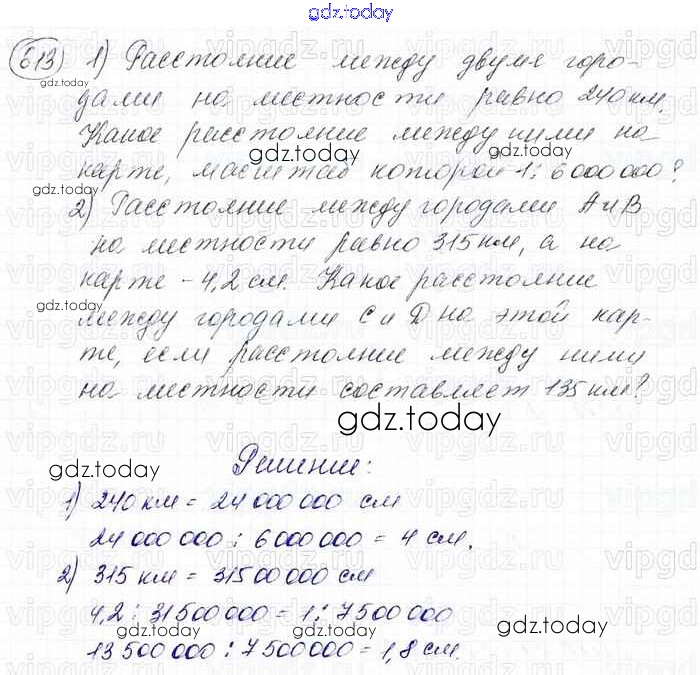 gdz.today
613 1) Расстояние между двумя горо-
дами на местности равно 240 км.
Какое расстояние между ними на
карте, масштаб которой 1 : 6 000 000?
2) Расстояние между городами А и В
на местности равно 315 км, а на
карте - 4,2 см. Какое расстояние
между городами С и D на этой кар-
те, если расстояние между ними
на местности составляет 135 км?
gdz.today
Решение:
1) 240 км = 24 000 000 см
24 000 000 : 6 000 000 = 4 см.
2) 315 км = 31500 000 см
4,2 : 31 500 000 = 1 : 7 500 000
13 500 000 : 7 500 000 = 1,8 см.